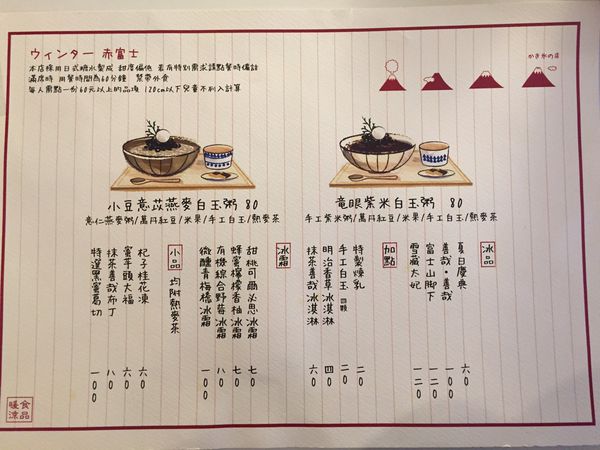 ウィンター 赤富士
かき氷の店
本店採用日式糖水製成 甜度偏低 若有特別需求請點餐時備註
滿席時 用餐時間為60分鐘 禁帶外食
每人需點一份60元以上的品項 120cm以下兒童不列入計算
小豆薏苡燕麥白玉粥 80
薏仁燕麥粥/萬丹紅豆/米果/手工白玉/熱麥茶
竜眼紫米白玉粥 80
手工紫米粥/萬丹紅豆/米果/手工白玉/熱麥茶
冰品
夏日慶典 六〇
善哉·善哉 一〇〇
富士山脚下 一二〇
雪藏太妃 一二〇
加點
特製煉乳 二〇
手工白玉 四顆 二〇
明治香草冰淇淋 四〇
抹茶善哉冰淇淋 六〇
冰霜
甜桃可爾必思冰霜 七〇
蜂蜜檸檬香柚冰霜 七〇
有機綜合野莓冰霜 八〇
微醺青梅橘冰霜 一〇〇
小品 均附熱麥茶
杞子桂花凍 六〇
蜜芋頭大福 六〇
抹茶善哉布丁 八〇
特選黑蜜葛切 一〇〇
暖食
涼品